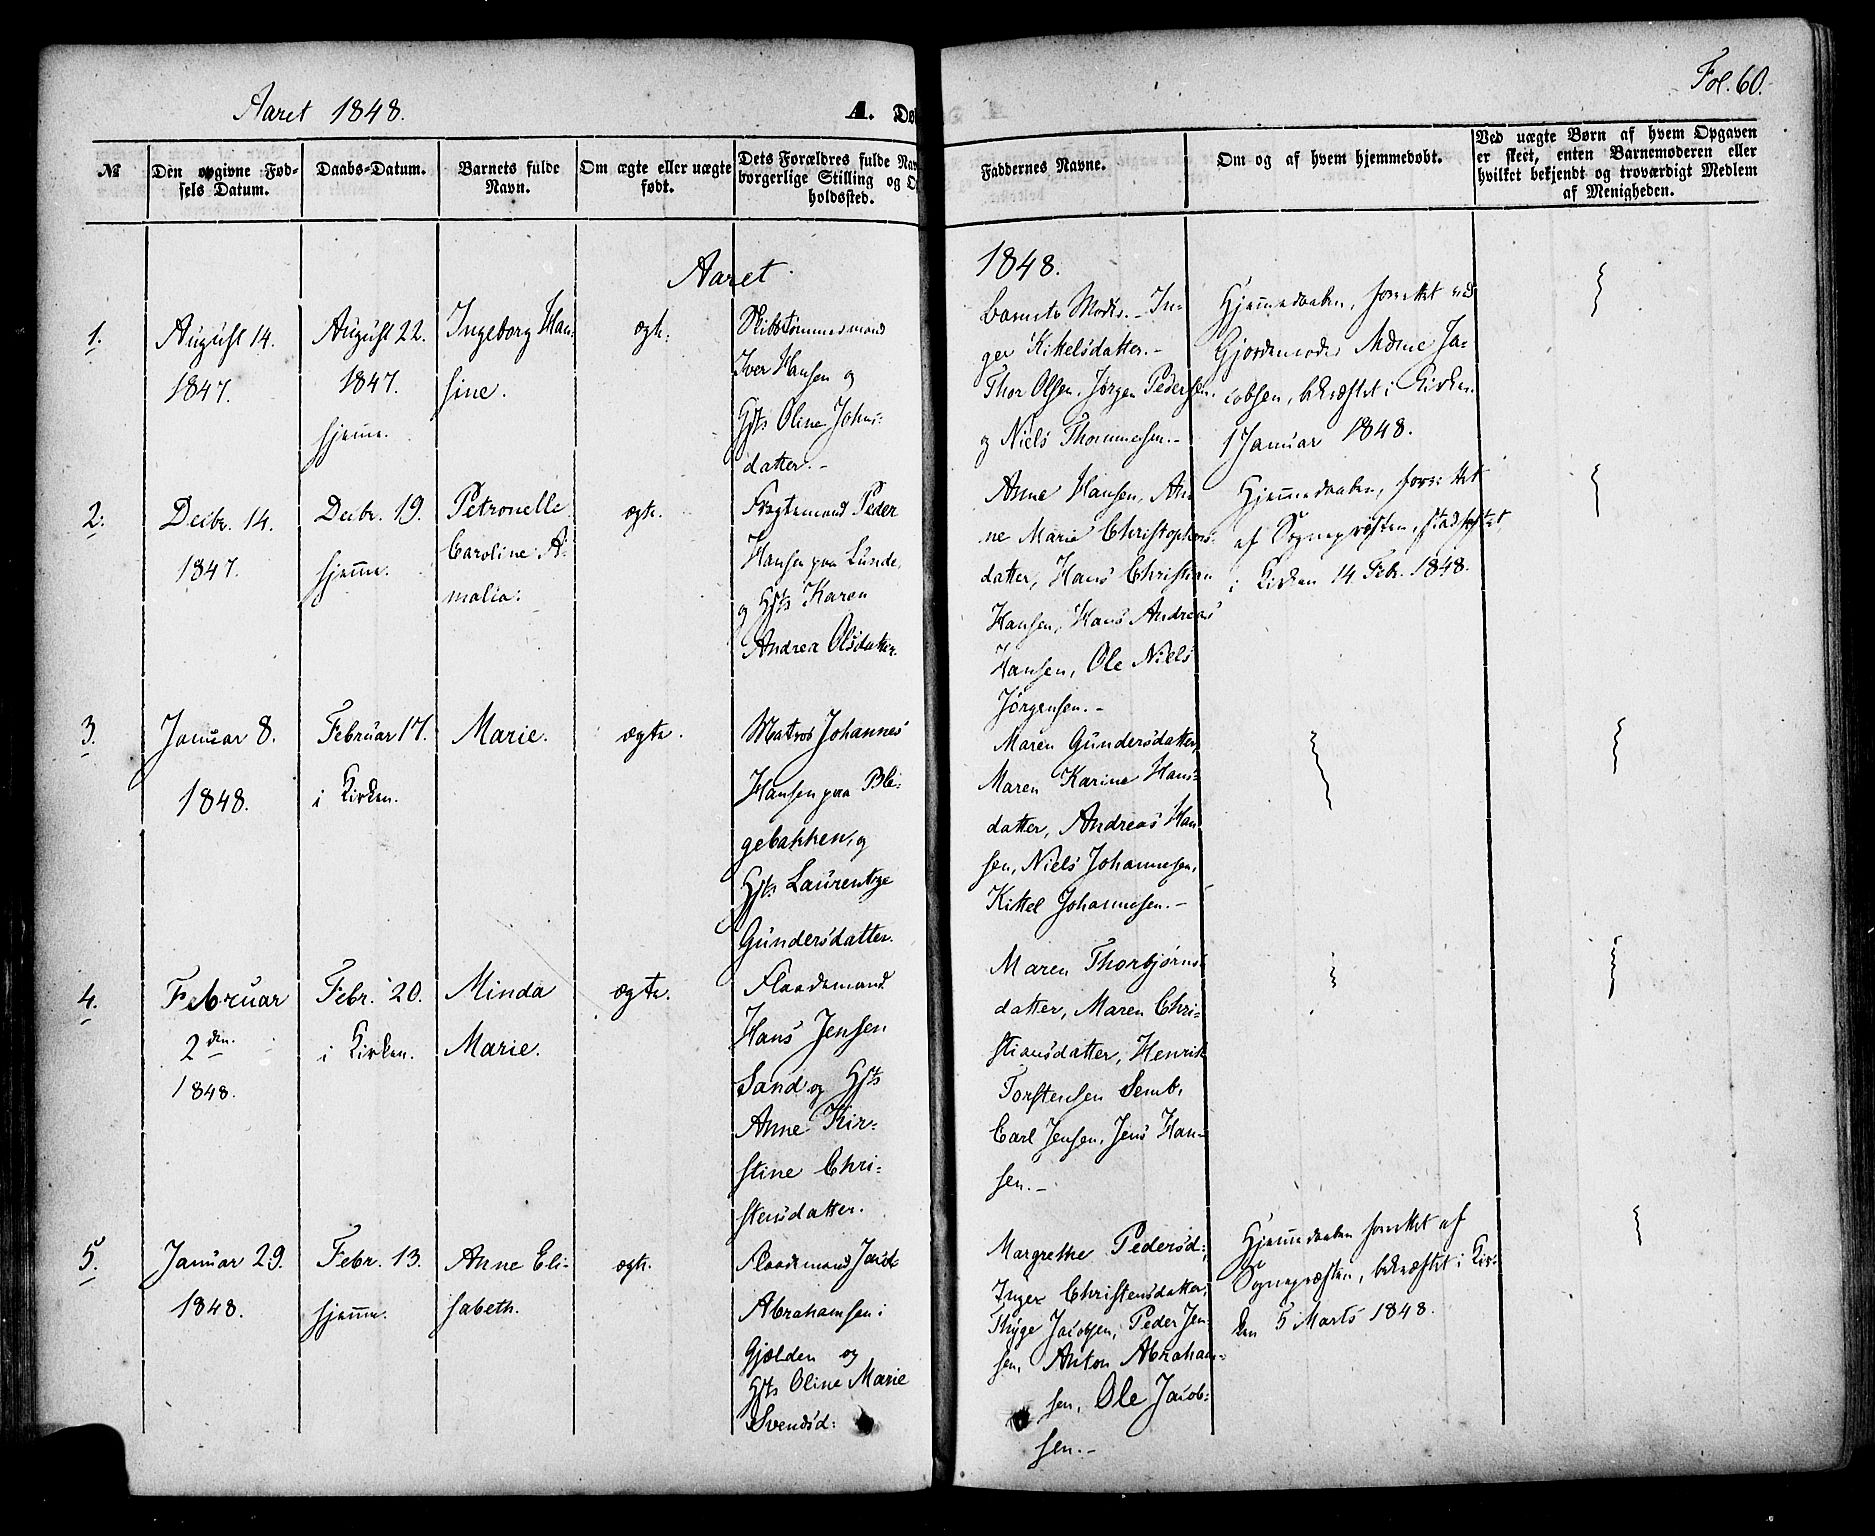 Aaret 1848.
A. Dø
Fol. 60.
№
Den opgivne Fød-
sels Datum.
Daabs-Datum.
Barnets fulde
Navn.
Om ægte eller uægte
født.
Dets Forældres fulde Nav
borgerlige Stilling og O
holdssted.
Faddernes Navne.
Om og af hvem hjemmedøbt.
Ved uægte Børn af hvem Opgaven
er skeet, enten Barnemoderen eller
hvilket bekjendt og troværdigt Medlem
af Menigheden.
Aaret
1848.
1.
August 14.
1847.
August 22.
1847.
hjemme.
Ingeborg Han-
sine.
ægte.
Skibstømmermand
Iver Hansen og
Hst. Oline Johns-
datter.-
Barnets Moder.- In-
ger Kittelsdatter.-
Thor Olsen, Jørgen Pedersen.
og Niels Thommesen.-
Hjemmedaaben, forrettet ved
Gjordemoder Mdme Ja-
cobsen, bekræftet i Kirken
1 Januar 1848.
2.
Decbr. 14.
1847.
Decbr. 19.
hjemme.
Petronelle
Caroline A-
malia.
ægte.
Fragtemand Peder
Hansen paa Lunde,
og Hst. Karen
Andrea Olsdatter.
Anne Hansen, An-
ne Marie Christophers-
datter, Hans Christian
Hansen, Hans Andreas
Hansen, Ole Niels
Jörgensen.-
Hjemmedaaben, forrettet
af Sognepræsten, stadfæstet
i Kirken 14 Febr. 1848.
3.
Januar 8.
1848.
Februar 17.
i Kirken.
Marie.
ægte.
Matros Johannes
Hansen paa Ble-
gebakken, og
Hst. Laurentze
Gundersdatter.
Maren Gundersdatter,
Maren Karine Hans-
datter, Andreas Han-
sen, Niels Johannesen,
Kittel Johannesen.-
4.
Februar
2den.
1848.
Febr. 20.
i Kirken.
Minda
Marie.
ægte.
Flaademand
Hans Jensen
Sand og Hst.
Anne Kir-
stine Chri-
stensdatter.
Maren Thorbjørns-
datter, Maren Chri-
stiansdatter, Henrik
Torstensen Semb,
Carl Jensen, Jens Han-
sen.-
5.
Januar 29.
1848.
Febr. 13.
hjemme.
Anne Eli-
sabeth.
ægte.
Flaademand Jacob
Abrahamsen i
Gjælden og
Hst. Oline Marie
Svendsd:
Margrethe Pedersd:,
Inger Christensdatter,
Thyge Jacobsen, Peder Jen-
sen, Anton Abraham-
sen, Ole Jacob-
sen.-
Hjemmedaaben forrettet af
Sognepræsten, bekræftet i Kir-
ken 5 Marts 1848.